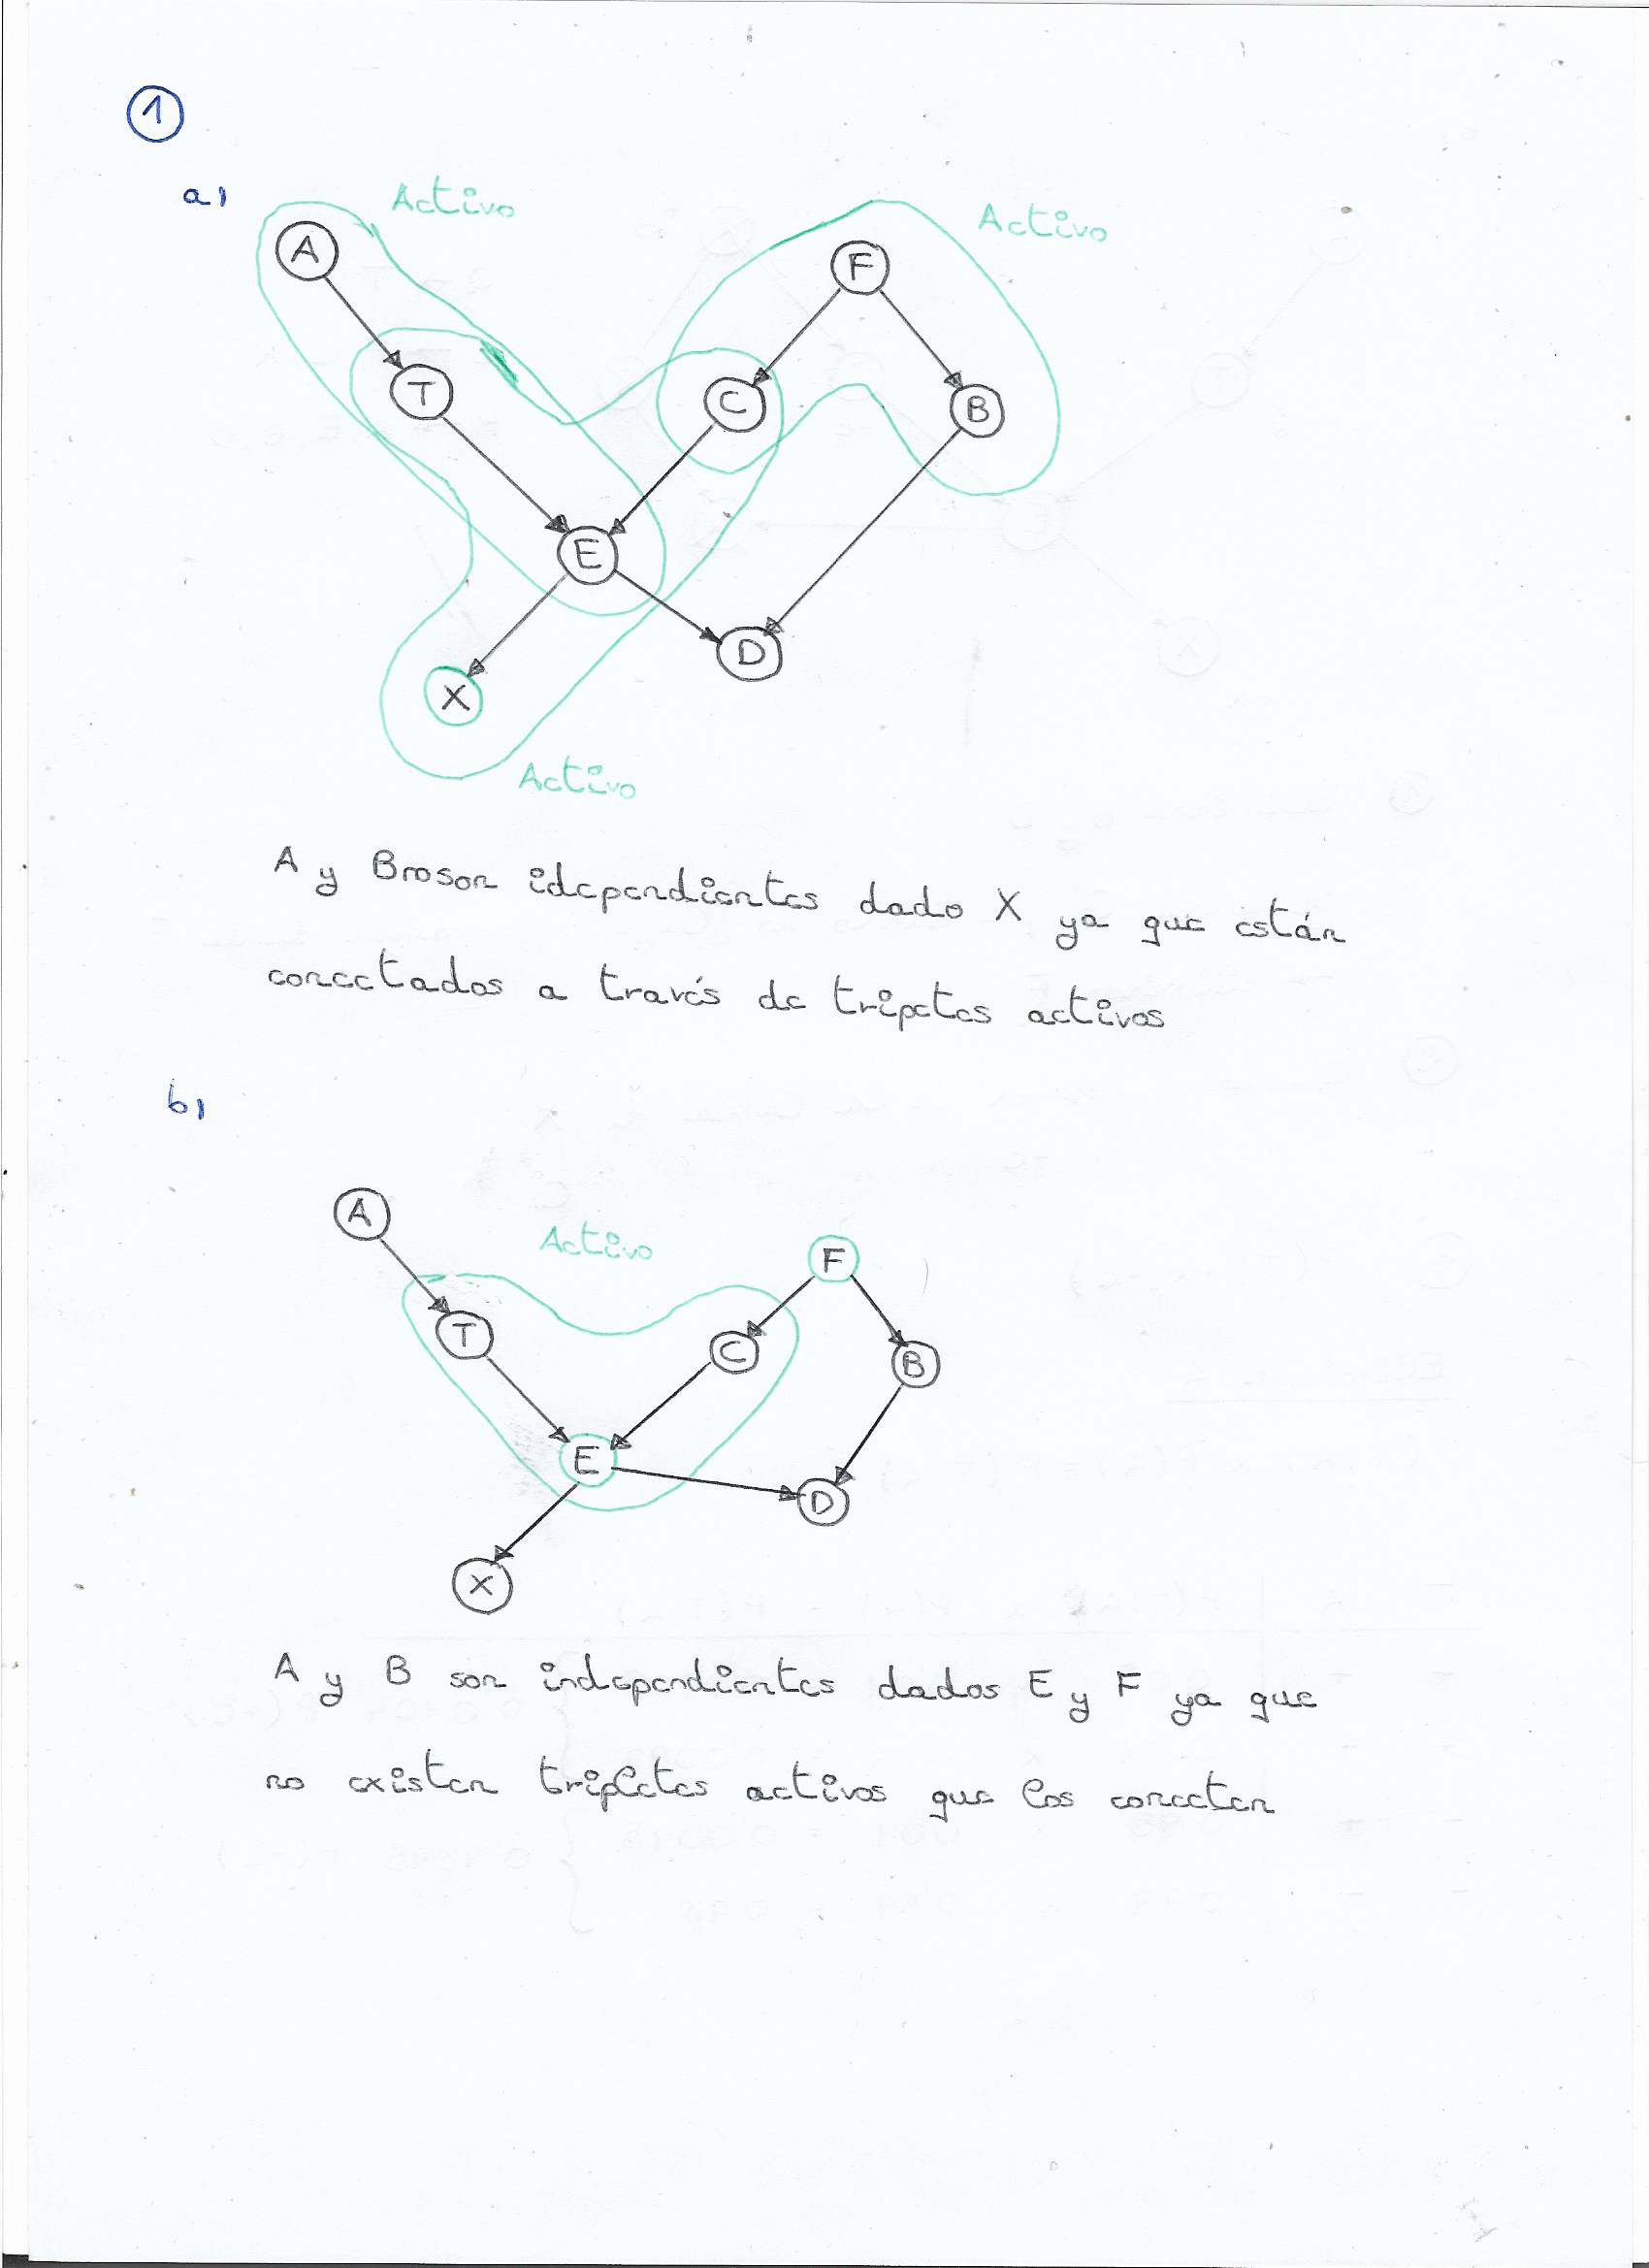 1
a)
Activo
Activo
A
F
T
C
B
E
D
X
Activo
A y B no son idependientes dado X ya que están
conectados a través de tripetes activos
b)
A
Activo
F
T
C
B
E
D
X
A y B son independientes dados E y F ya que
no existen tripletes activos que los conecten